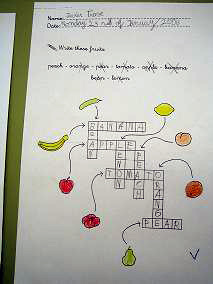 Name:
Date: Monday of January, 2006
Write these fruits
peach - orange - pear - tomato - apple - banana
bean - lemon
BANANA
BEAN
APPLE
LEMON
PEACH
TOMATO
ORANGE
PEAR